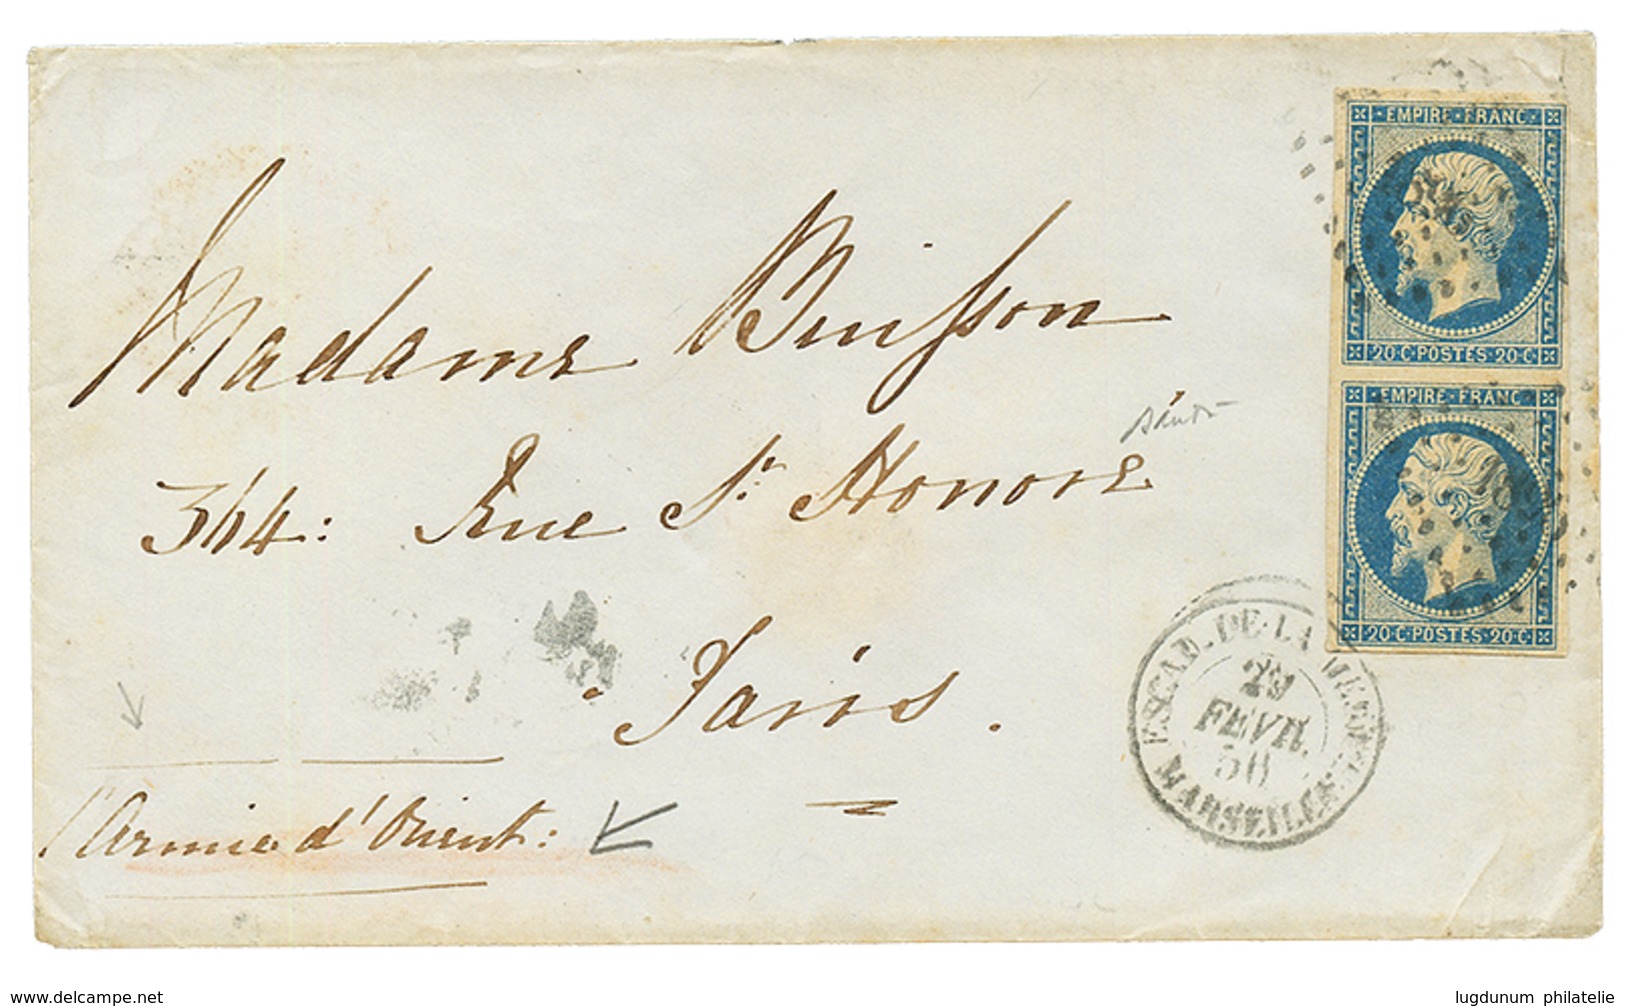 EMPIRE·FRANC
20·C·POSTES·20·C
EMPIRE·FRANC
20·C·POSTES·20·C
Madame Buisson
364: Rue St Honoré
Paris.
l'Armée d'Orient:
ESCAD. DE LA MEDIT.
29
FEVR.
56
MARSEILLE
www.delcampe.net
lugdunum philatelie